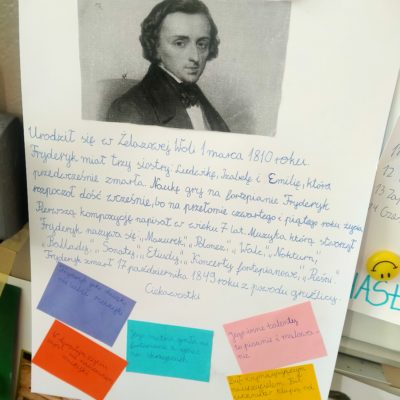 Urodził się w Żelazowej Woli 1 marca 1810 roku.
Fryderyk miał trzy siostry: Ludwikę, Izabelę i Emilię, która
przedwcześnie zmarła. Naukę gry na fortepianie Fryderyk
rozpoczął dość wcześnie, bo na przełomie czwartego i piątego roku życia.
Pierwszą kompozycję napisał w wieku 7 lat. Muzyka którą stworzył
Fryderyk nazywa się "Mazurki", "Polonez", "Walc", "Nokturn",
"Ballady", "Sonaty", "Etiudy", "Koncerty fortepianowe", "Pieśni"
Fryderyk zmarł 17 października 1849 roku z powodu gruźlicy.
Ciekawostki
Jego mama grała na
fortepianie a ojciec
na skrzypcach
Jego inne talenty
to pisanie i malowa-
nie